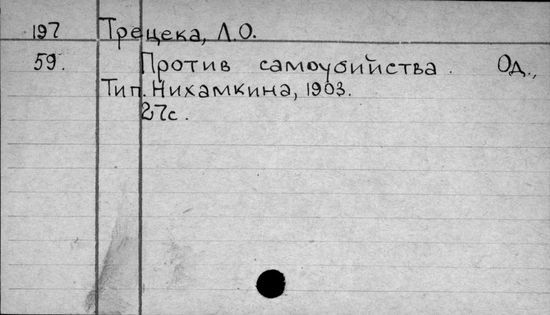 197 Трецека, Л.О.
59. Против самоубийства. Од.,
Тип. Нихамкина, 1903.
27с.